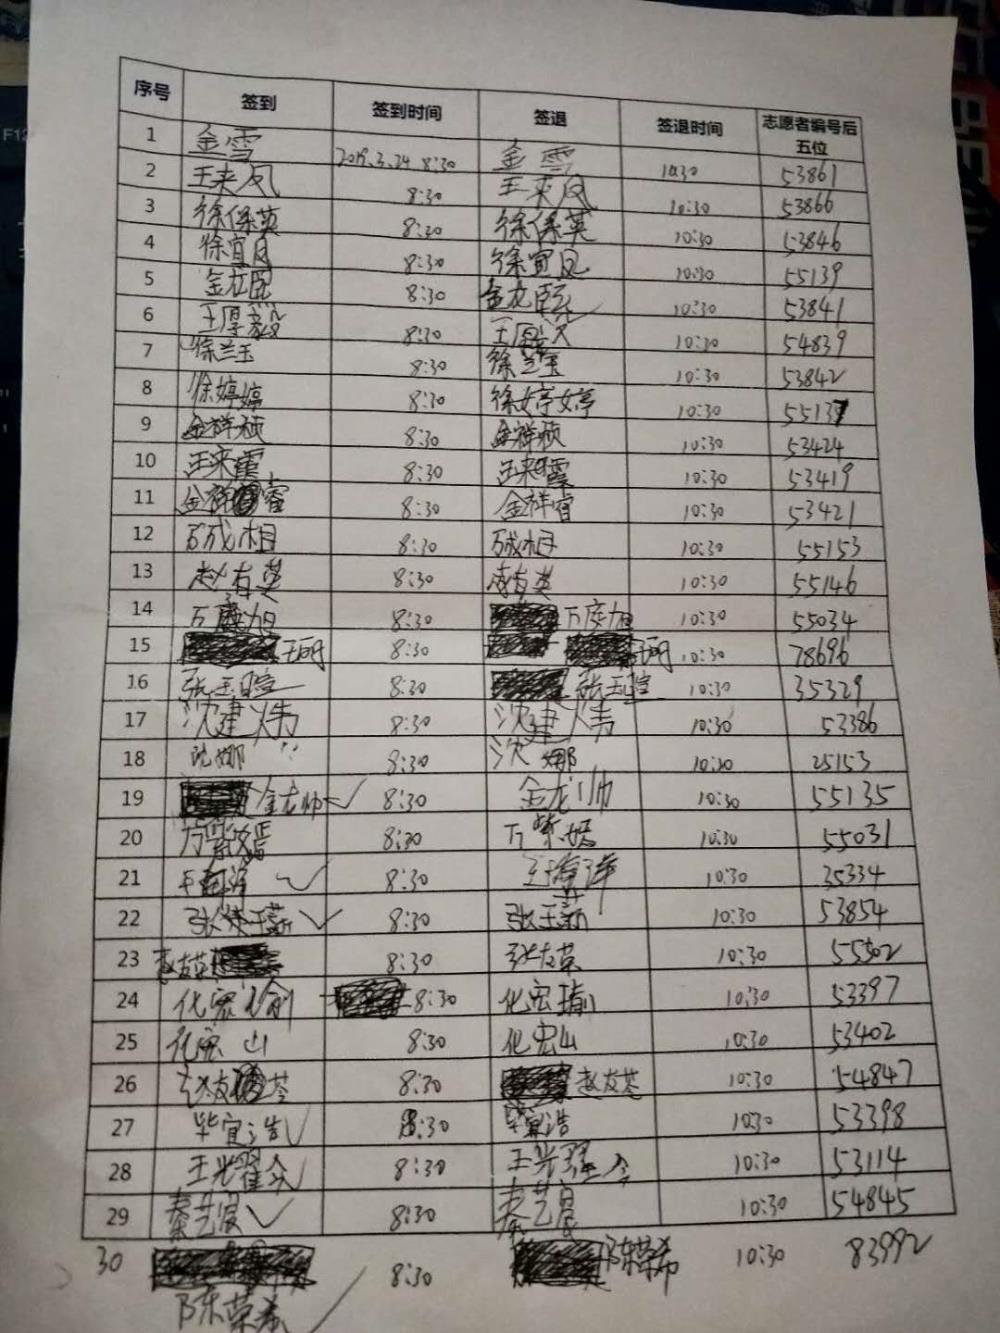 序号 签到 签到时间 签退 签退时间 志愿者编号后五位
1 金雪 2019.3.24 8:30 金雪 10:30 53861
2 王来凤 8:30 王来凤 10:30 53866
3 徐保英 8:30 徐保英 10:30 53846
4 徐宜凤 8:30 徐宜凤 10:30 55139
5 金龙 8:30 金龙 10:30 53841
6 王厚毅 8:30 王厚 10:30 54839
7 徐兰玉 8:30 徐兰玉 10:30 53842
8 徐婷婷 8:30 徐婷婷 10:30 55137
9 金祥祯 8:30 金祥祯 10:30 53424
10 王来霞 8:30 王来霞 10:30 53419
11 金祥睿 8:30 金祥睿 10:30 53421
12 成相 8:30 成相 10:30 55153
13 赵有英 8:30 有英 10:30 55146
14 万庆旭 8:30 万庆旭 10:30 55034
15 8:30 10:30 78696
16 张玉暄 8:30 张玉暄 10:30 35329
17 沈建伟 8:30 沈建伟 10:30 53386
18 沈娜 8:30 沈娜 10:30 25153
19 金龙帅 8:30 金龙帅 10:30 55135
20 万紫嫣 8:30 万紫嫣 10:30 55031
21 8:30 10:30 35334
22 张玉薪 8:30 张玉薪 10:30 53854
23 赵友英 8:30 10:30 55502
24 化宏瑜 8:30 化宏瑜 10:30 53397
25 化宏山 8:30 化宏山 10:30 53402
26 8:30 赵友苓 10:30 54847
27 毕宜浩 8:30 毕宜浩 10:30 53398
28 王光翟 8:30 王光 10:30 53114
29 秦艺宸 8:30 秦艺宸 10:30 54845
30 8:30 陈荣希 10:30 83992
陈荣希
F12